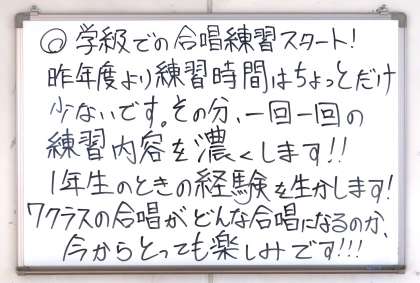 ◎学級での合唱練習スタート!
昨年度より練習時間はちょっとだけ
少ないです。その分、一回一回の
練習内容を濃くします!!
1年生のときの経験を生かします!
7クラスの合唱がどんな合唱になるのか、
今からとっても楽しみです!!!